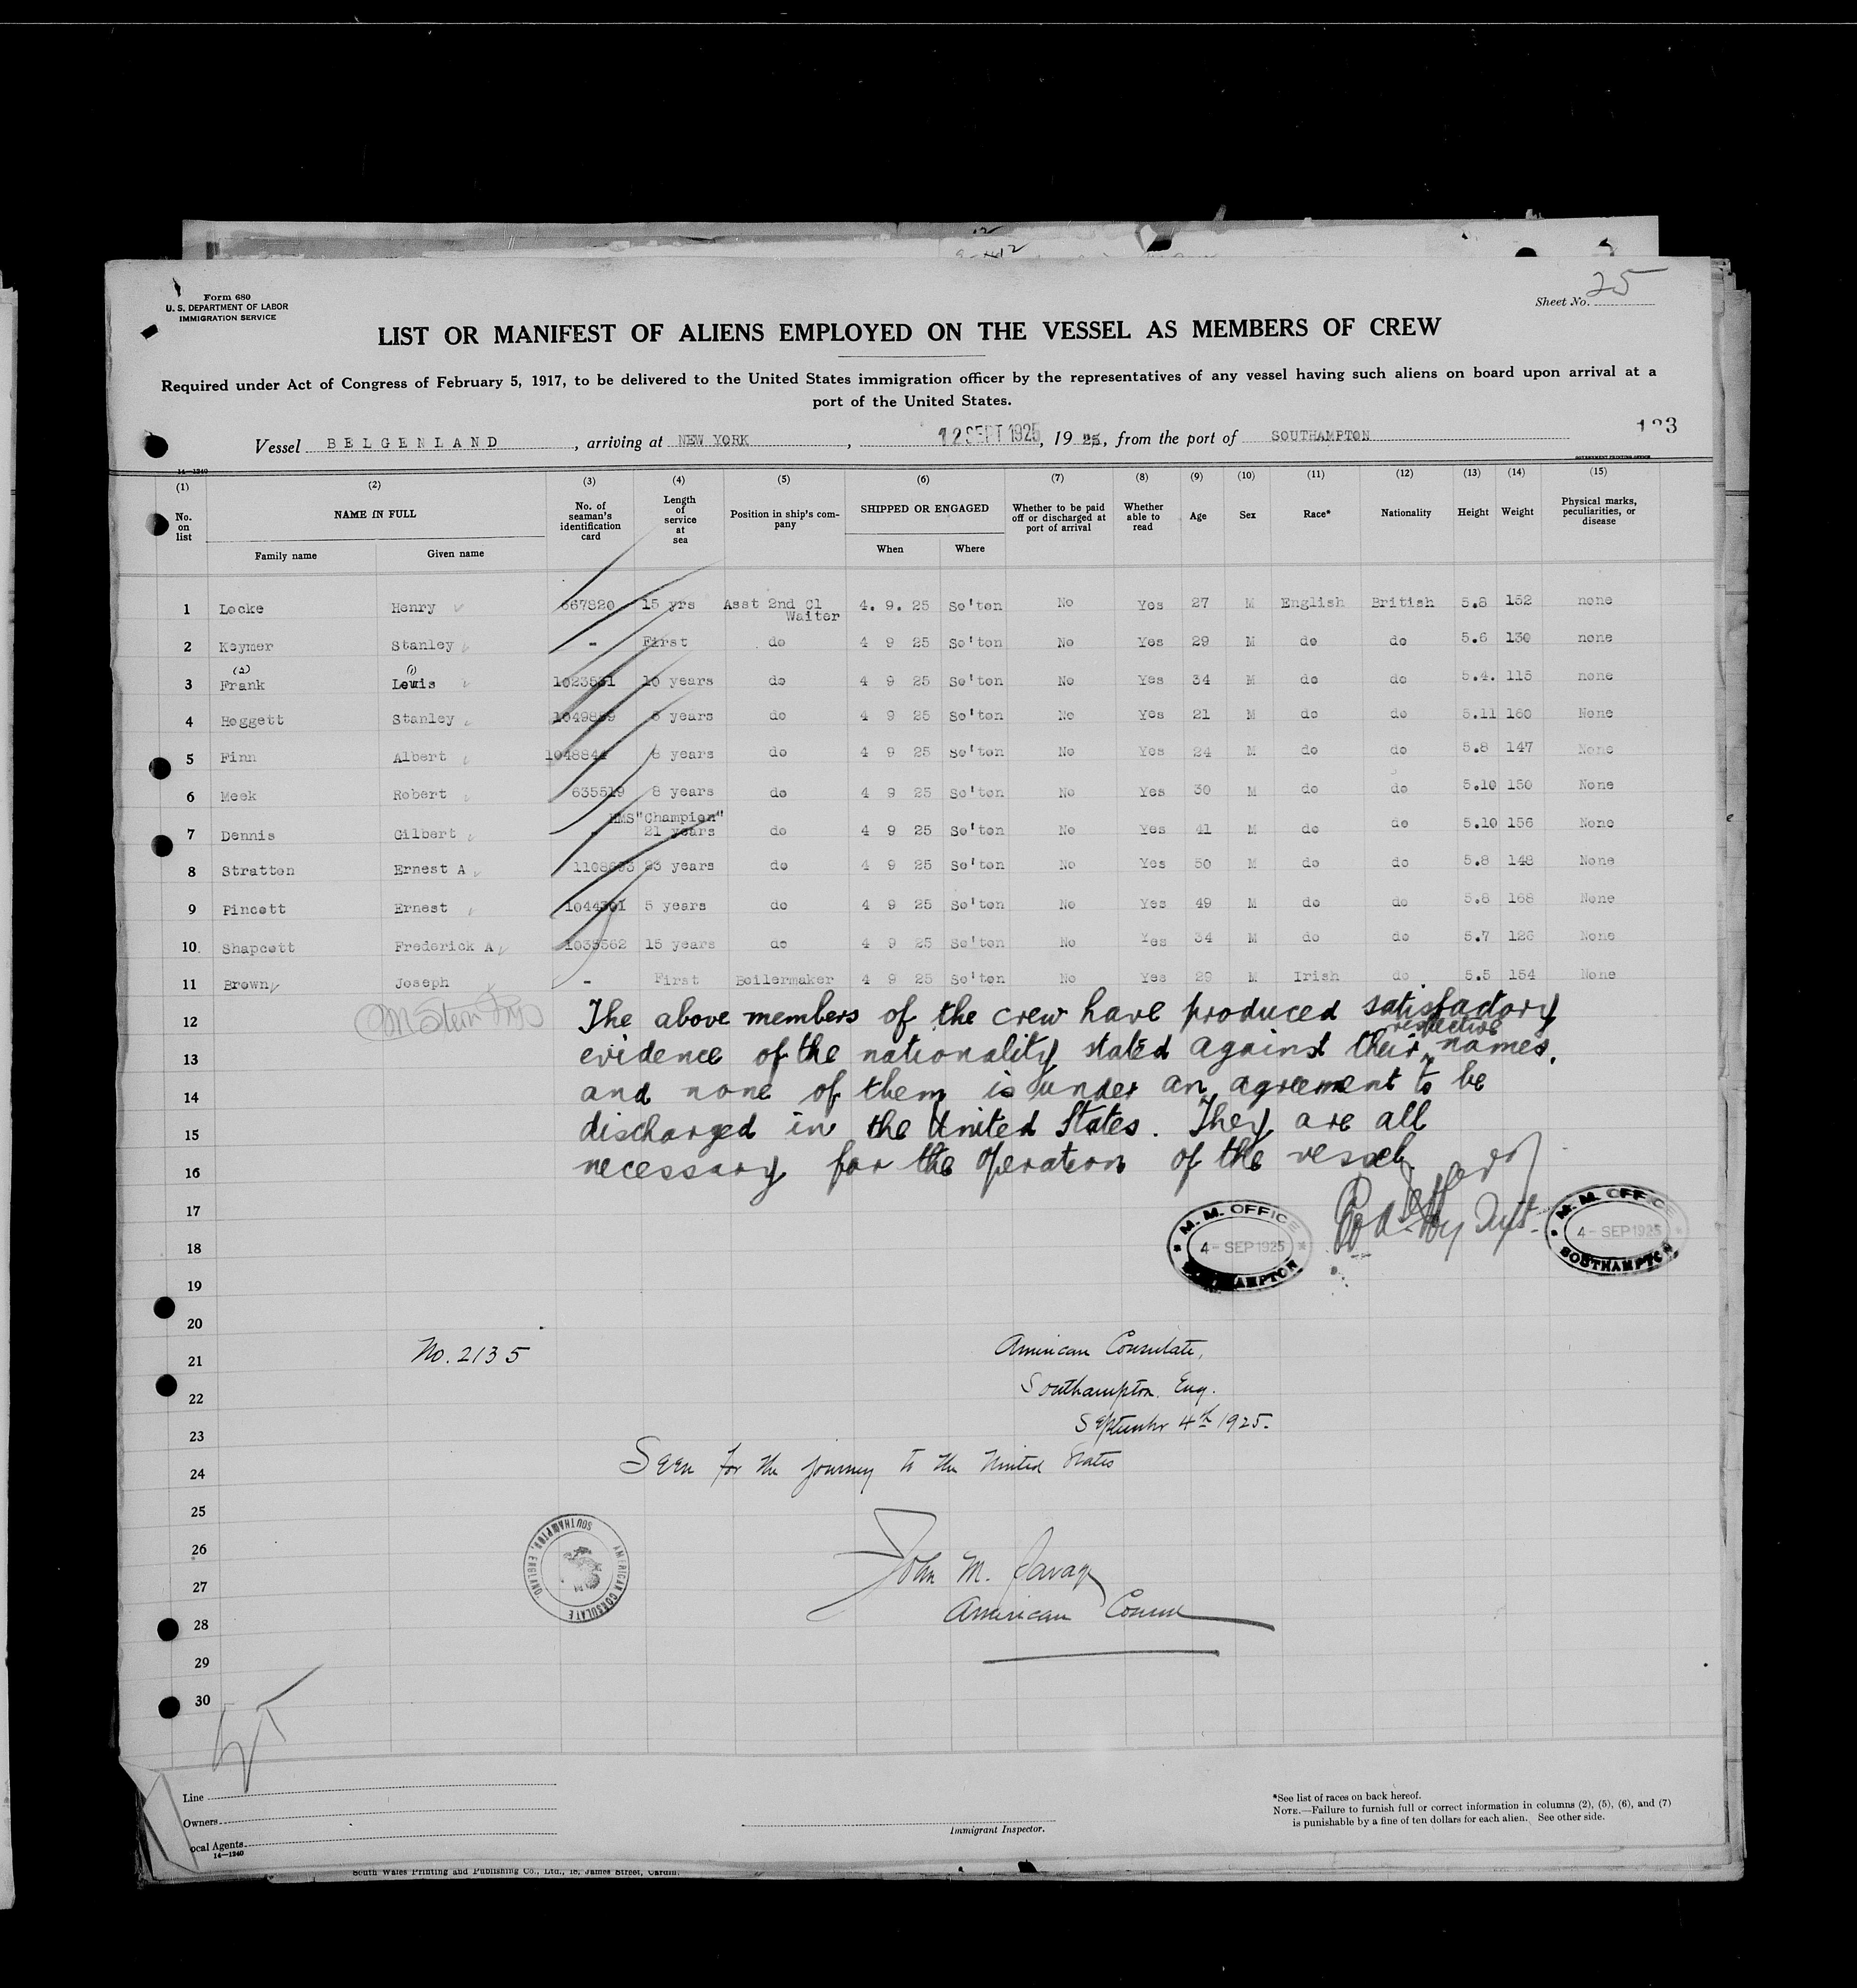 Form 680
U. S. DEPARTMENT OF LABOR
IMMIGRATION SERVICE
Sheet No. 25
LIST OR MANIFEST OF ALIENS EMPLOYED ON THE VESSEL AS MEMBERS OF CREW
Required under Act of Congress of February 5, 1917, to be delivered to the United States immigration officer by the representatives of any vessel having such aliens on board upon arrival at a
port of the United States.
Vessel BELGENLAND, arriving at NEW YORK, 12 SEPT 1925, 19 25, from the port of SOUTHAMPTON
14—1240
GOVERNMENT PRINTING OFFICE
(1) (2) (3) (4) (5) (6) (7) (8) (9) (10) (11) (12) (13) (14) (15)
No. on list NAME IN FULL No. of seaman's identification card Length of service at sea Position in ship's company SHIPPED OR ENGAGED Whether to be paid off or discharged at port of arrival Whether able to read Age Sex Race* Nationality Height Weight Physical marks, peculiarities, or disease
Family name Given name When Where
1 Locke Henry 667820 15 yrs Asst 2nd Cl Waiter 4. 9. 25 So'ton No Yes 27 M English British 5.8 152 none
2 Keymer Stanley - First do 4 9 25 So'ton No Yes 29 M do do 5.6 130 none
(2) (1)
3 Frank Lewis 10 years do 4 9 25 So'ton No Yes 34 M do do 5.4. 115 none
4 Hoggett Stanley years do 4 9 25 So'ton No Yes 21 M do do 5.11 160 None
5 Finn Albert 1048844 8 years do 4 9 25 So'ton No Yes 24 M do do 5.8 147 None
6 Meek Robert 635519 8 years do 4 9 25 So'ton No Yes 30 M do do 5.10 150 None
HMS "Champion"
7 Dennis Gilbert - 21 years do 4 9 25 So'ton No Yes 41 M do do 5.10 156 None
8 Stratton Ernest A 23 years do 4 9 25 So'ton No Yes 50 M do do 5.8 148 None
9 Pincott Ernest 5 years do 4 9 25 So'ton No Yes 49 M do do 5.8 168 None
10. Shapcott Frederick A 15 years do 4 9 25 So'ton No Yes 34 M do do 5.7 126 None
11 Brown Joseph - First Boilermaker 4 9 25 So'ton No Yes 29 M Irish do 5.5 154 None
12 The above members of the crew have produced satisfactory
respective
13 evidence of the nationality stated against their names,
14 and none of them is under an agreement to be
15 discharged in the United States. They are all
16 necessary for the operation of the vessel.
17
M. M. OFFICE
4 - SEP 1925
SOUTHAMPTON
M. M. OFFICE
4 - SEP 1925
SOUTHAMPTON
18
19
20
21 No. 2135 American Consulate,
22 Southampton, Eng.
23 September 4th 1925.
24 Seen for the journey to the United States
25
AMERICAN CONSULATE
SOUTHAMPTON, ENGLAND
26
27 John M. Savage
28 American Consul
29
30
Line
Owners
ocal Agents
14—1240
Immigrant Inspector.
*See list of races on back hereof.
NOTE.—Failure to furnish full or correct information in columns (2), (5), (6), and (7)
is punishable by a fine of ten dollars for each alien. See other side.
South Wales Printing and Publishing Co., Ltd., 18, James Street, Cardiff.